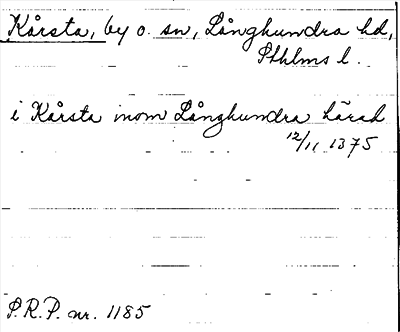 Kårsta, by o. sn, Långhundra hd,
Sthlms l.
i Kårsta inom Långhundra härad
12/11 1375
P.R.P. nr. 1185